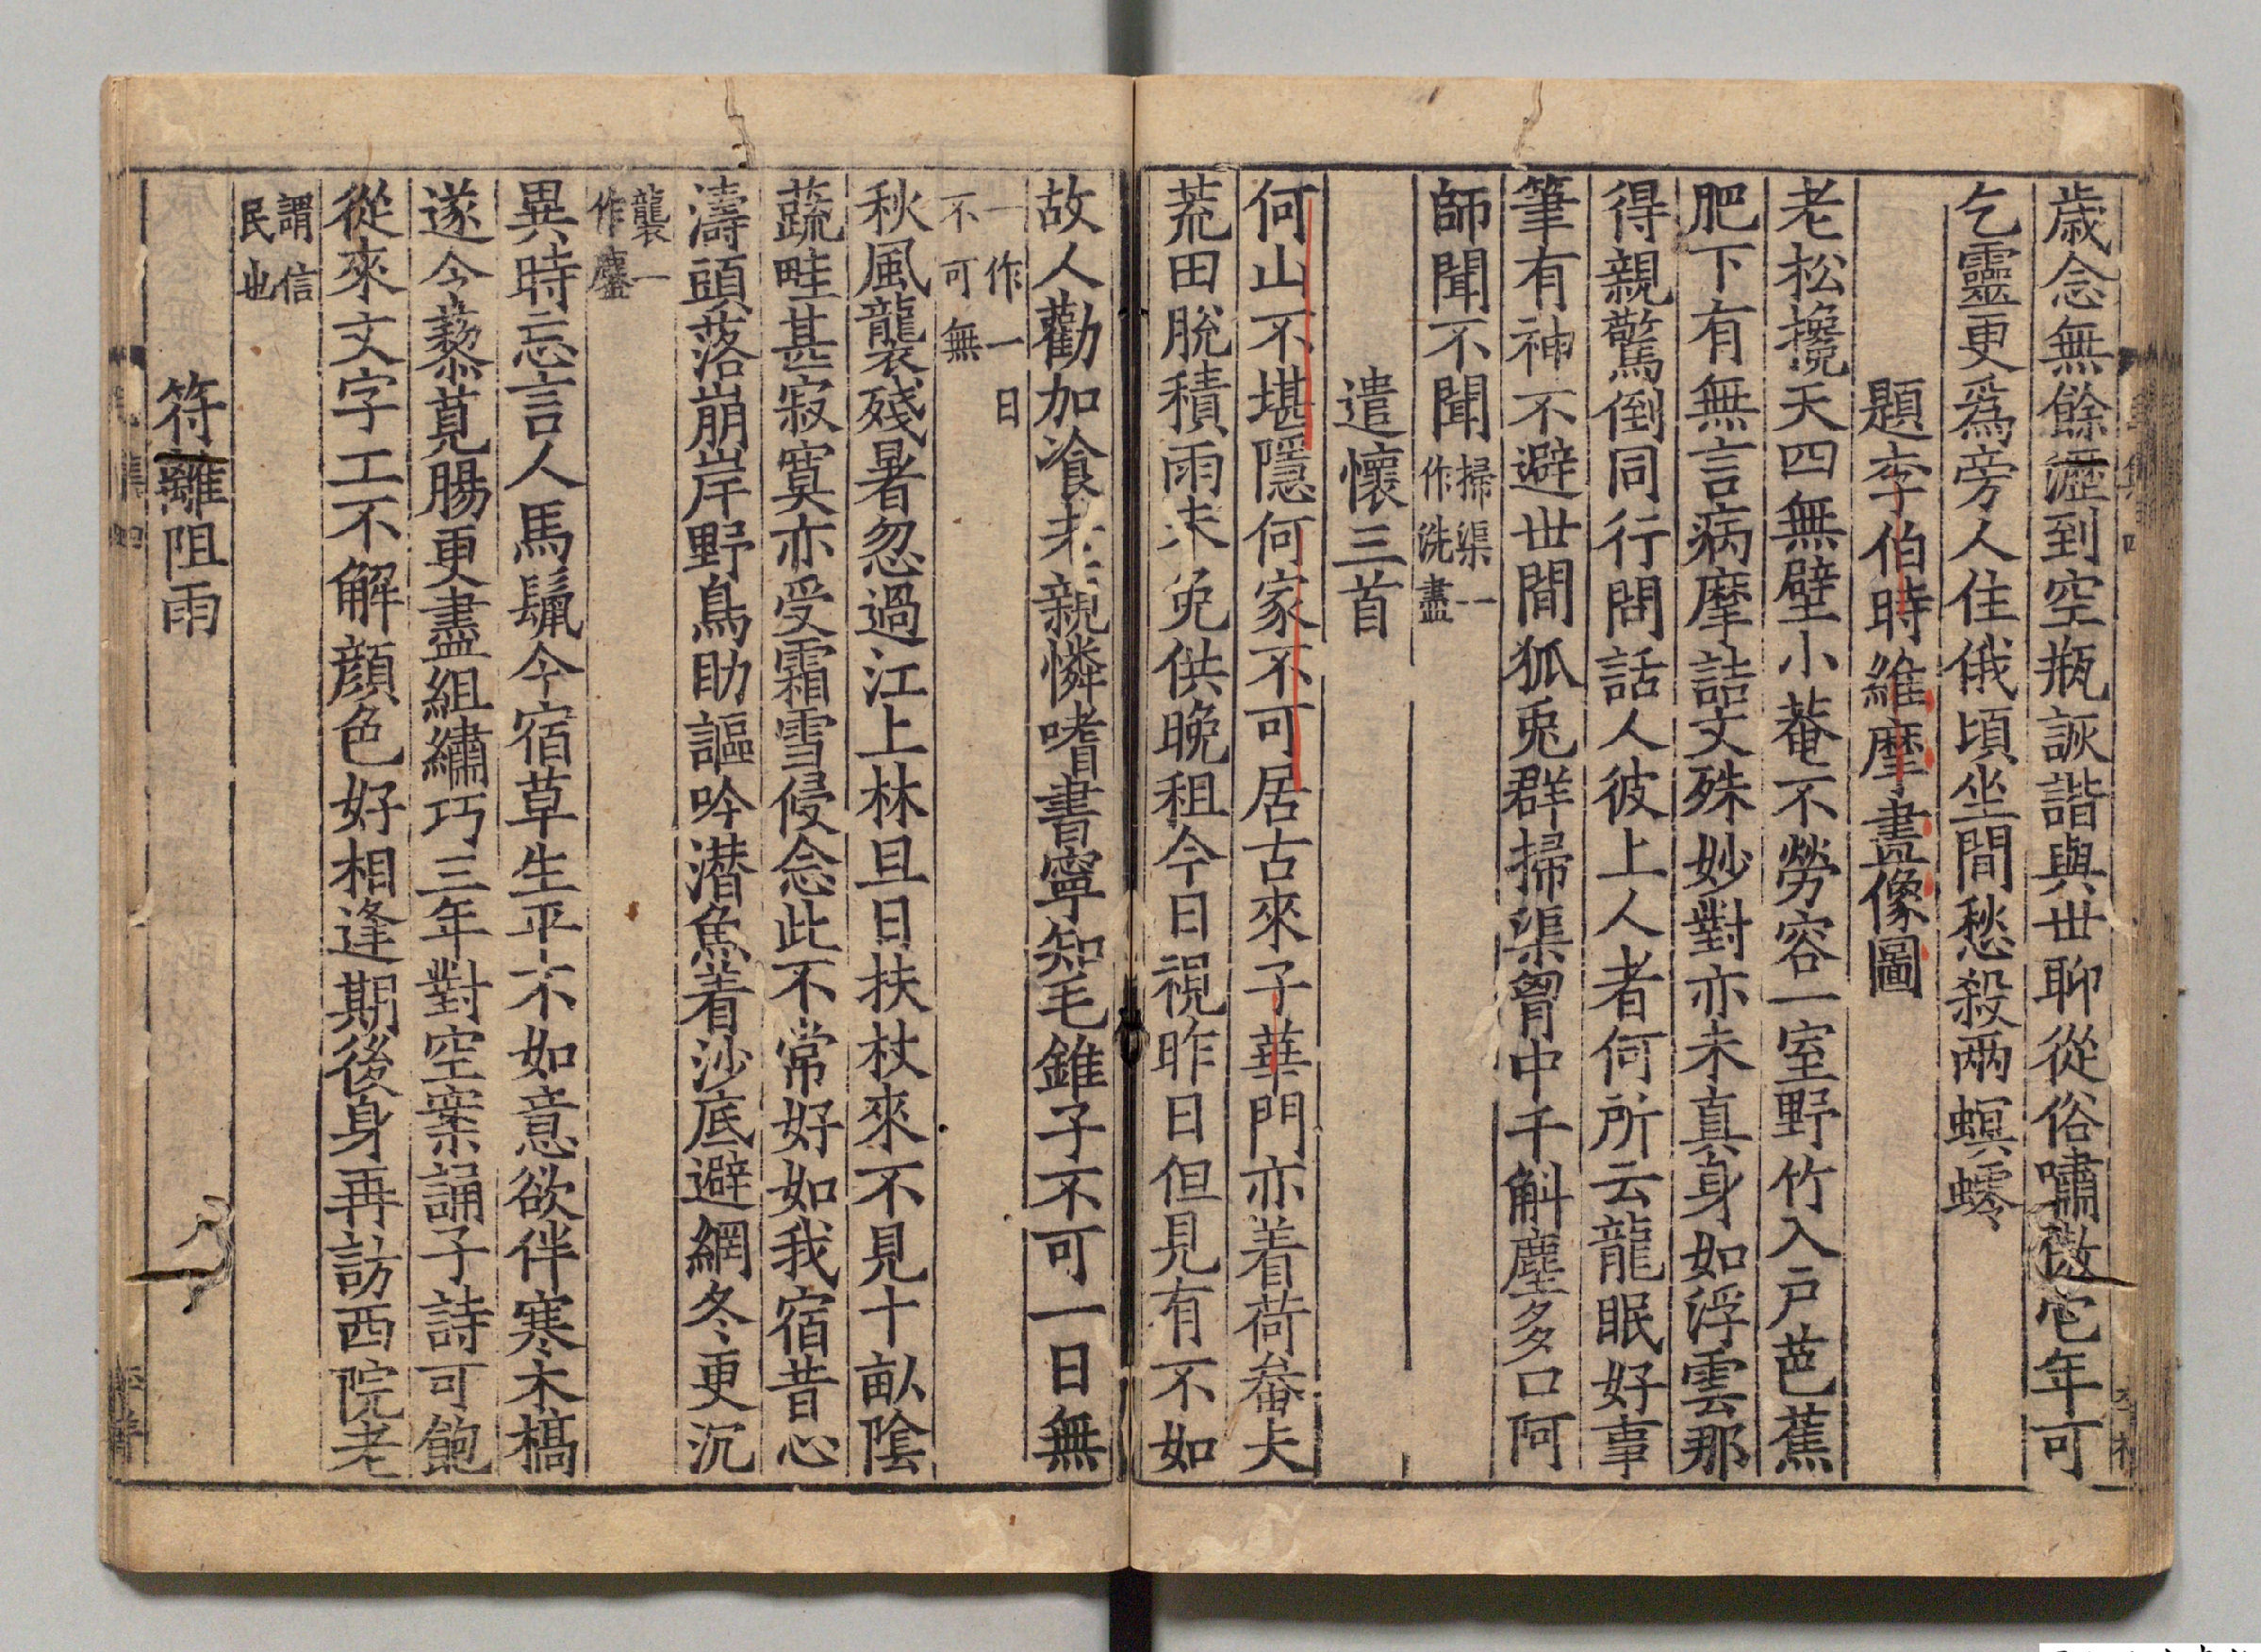 歳念無餘瀝到空瓶詼諧與世聊從俗嘯傲它年可
乞靈更爲旁人住俄頃坐間愁殺兩螟蠕
題李伯時維摩畫像圖
老松攙天四無壁小菴不勞容一室野竹入戸芭蕉
肥下有無言病摩詰文殊妙對亦未真身如浮雲那
得親驚倒同行問話人彼上人者何所云龍眠好事
筆有神不避世間狐兎群掃渠胷中千斛塵多口阿
師聞不聞掃渠一
作洗盡
遣懷三首
何山不堪隱何家不可居古來子華門亦着荷畚夫
荒田脫積雨未免供晚租今日視昨日但見有不如
故人勸加飡老親憐嗜書寧知毛錐子不可一日無
一作一日
不可無
秋風襲殘暑忽過江上林旦日扶杖來不見十畝陰
蔬畦甚寂寞亦受霜雪侵念此不常好如我宿昔心
濤頭落崩岸野鳥助謳吟潜魚着沙底避網冬更沉
襲一
作鏖
異時忘言人馬鬣今宿草生平不如意欲伴寒木槁
遂令藜莧腸更盡組繡巧三年對空案誦子詩可飽
從來文字工不解顔色好相逢期後身再訪西院老
謂信
民也
符離阻雨